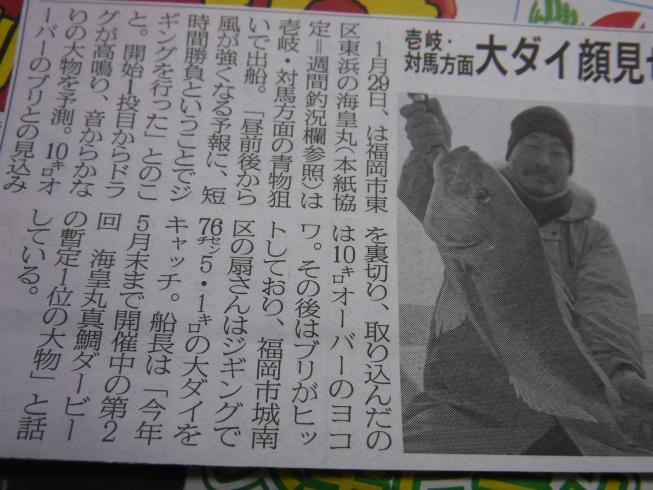 壱岐・
対馬方面
大ダイ顔見
1月29日、は福岡市東
区東浜の海皇丸（本紙協
定＝週間釣況欄参照）は
壱岐・対馬方面の青物狙
いで出船。「昼前後から
風が強くなる予報に、短
時間勝負ということでジ
ギングを行った」とのこ
と。開始1投目からドラ
グが高鳴り、音からかな
りの大物を予測。10㌔オ
ーバーのブリとの見込み
を裏切り、取り込んだの
は10㌔オーバーのヨコ
ワ。その後はブリがヒッ
トしており、福岡市城南
区の扇さんはジギングで
76㌢5・1㌔の大ダイを
キャッチ。船長は「今年
5月末まで開催中の第2
回　海皇丸真鯛ダービー
の暫定1位の大物」と話
している。